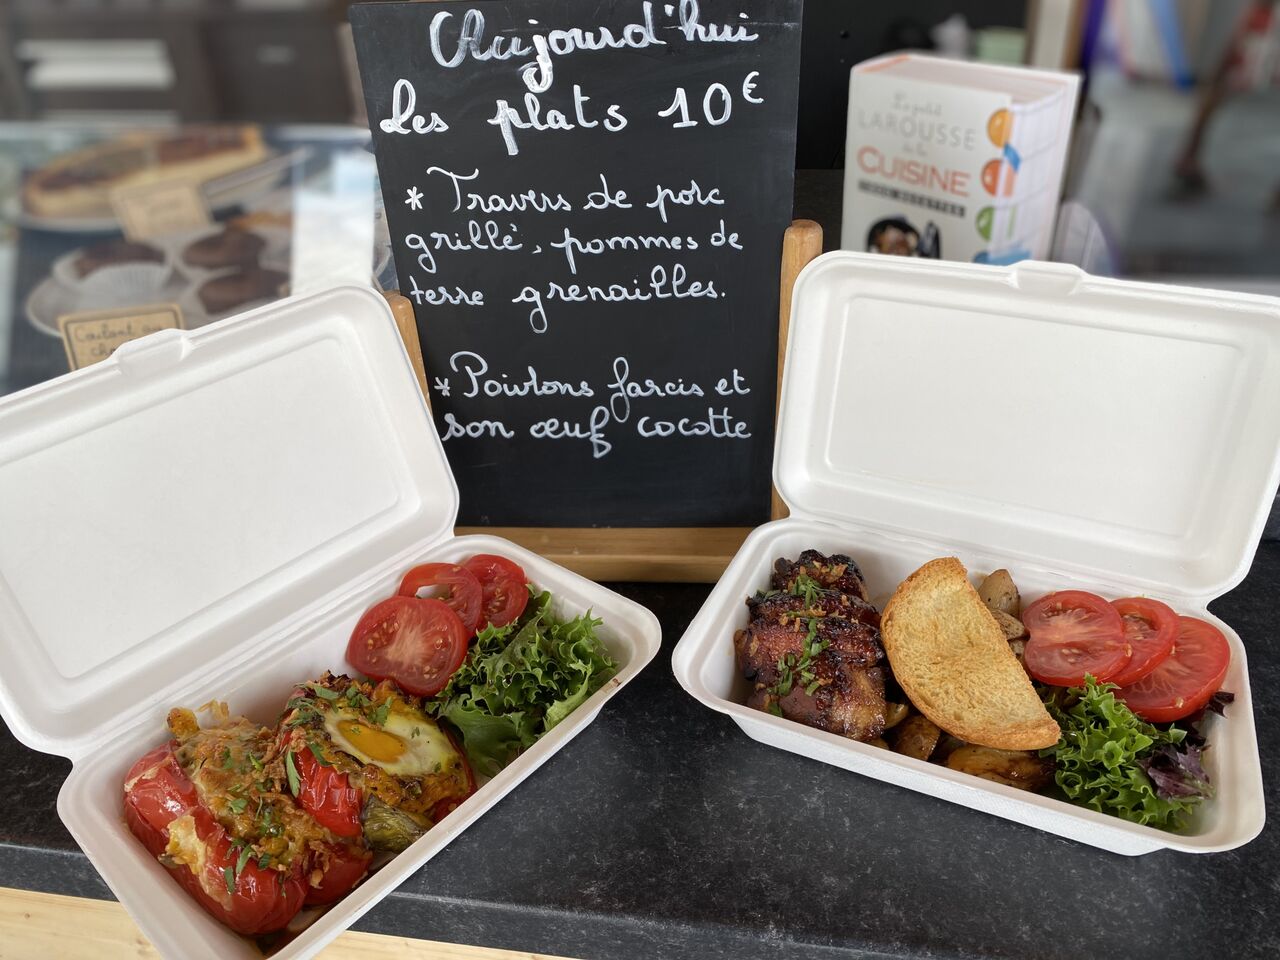 Aujourd'hui
Les plats 10€
* Travers de porc
grillé, pommes de
terre grenailles.
* Poivrons farcis et
son œuf cocotte
Le petit
LAROUSSE
de la
CUISINE
Coulant au